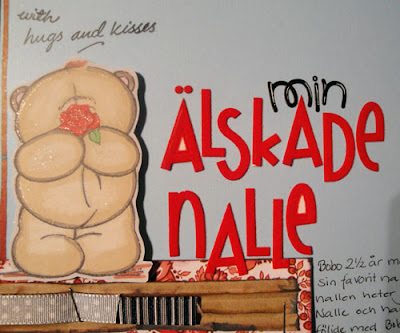 with
hugs and kisses
min
ÄLSKADE
NALLE
Bobo 2½ år m
Sin favorit na
nallen heter
Nalle och ha
följde med B